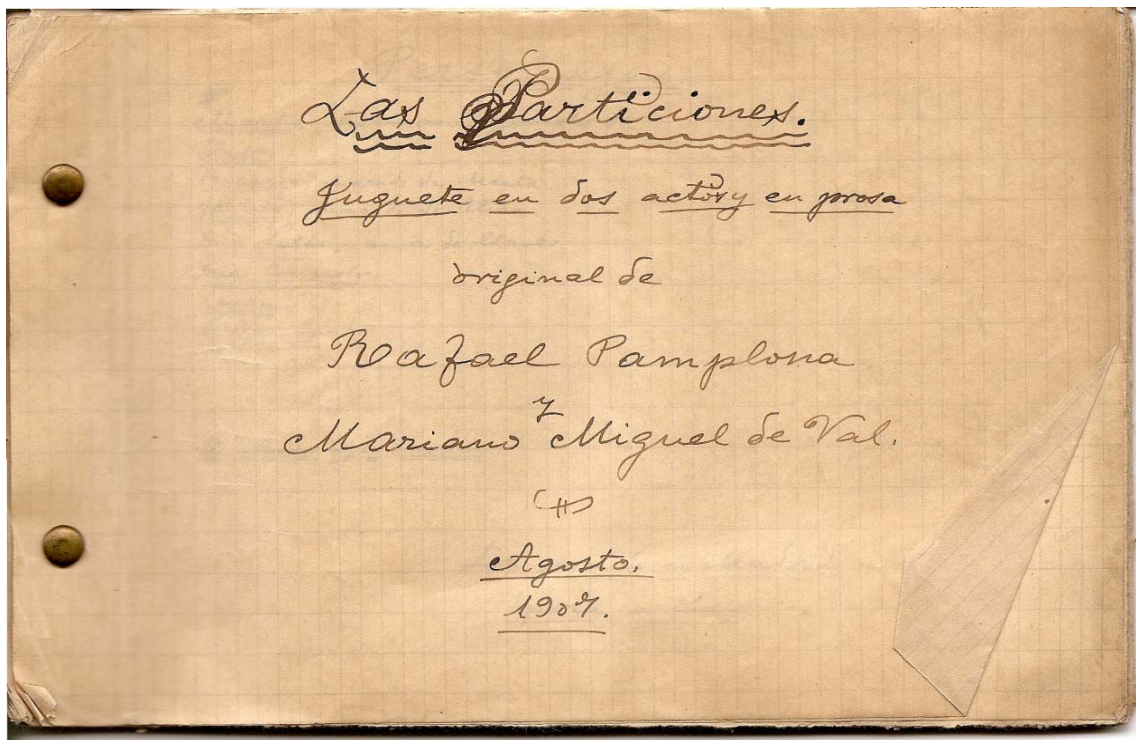 Las Particiones.
Juguete en dos actos y en prosa
original de
Rafael Pamplona
y
Mariano Miguel de Val.
Agosto.
1907.